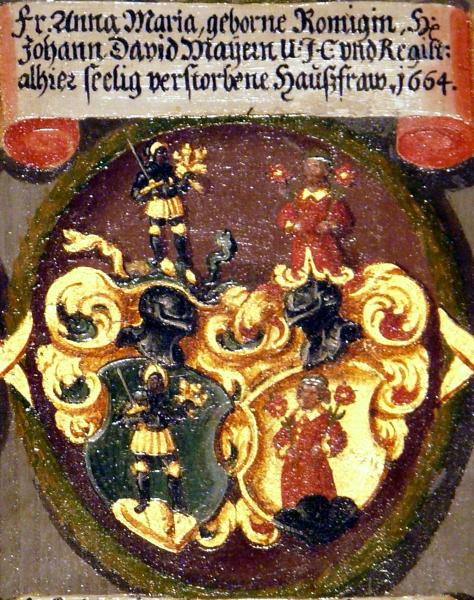 Fr. Anna Maria, geborne Romigin, H:
Johann David Mayern U.J.C und Regist:
alhier seelig verstorbene Haußfraw. 1664.